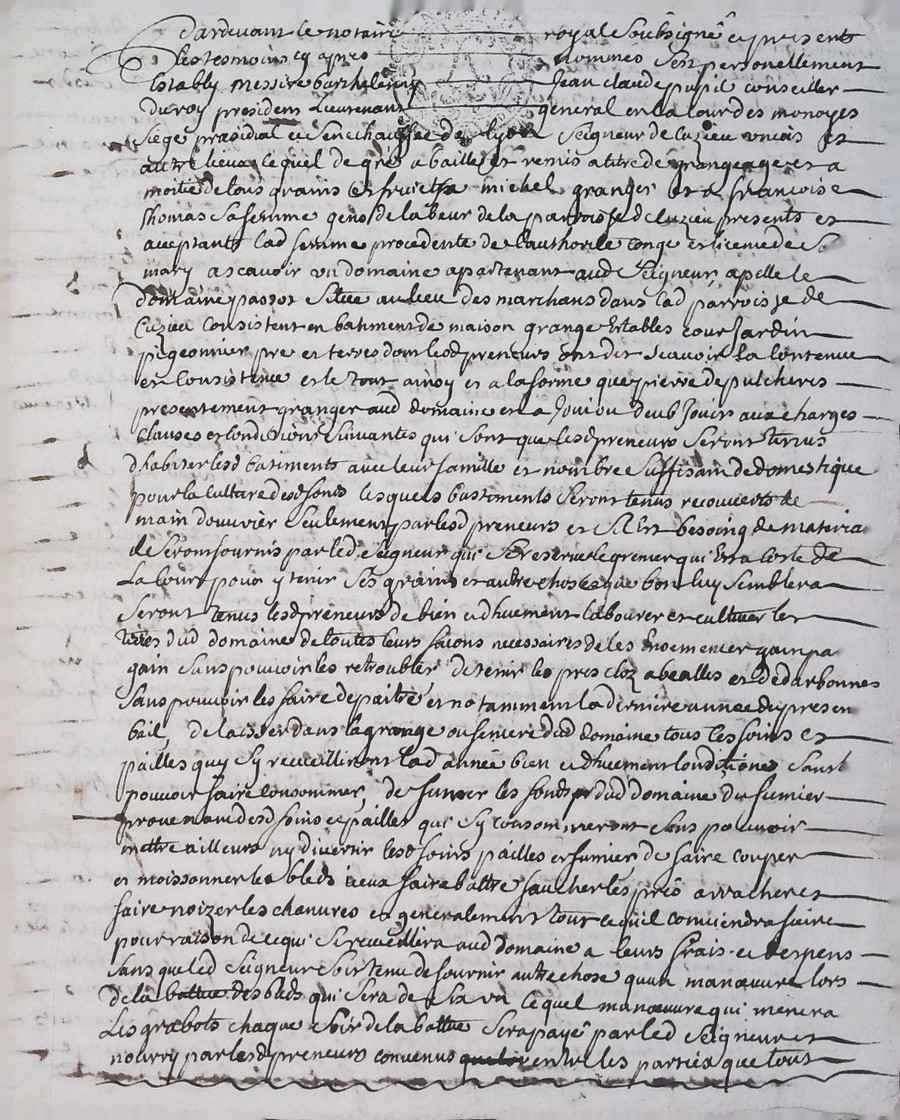 Pardevant le notaire royal soubsigné et presents
les tesmoins cy apres nommés s'est personellement
estably messire barthelemy Jean claude pupil conseiller
du roy president Lieutenant general en la cour des monoyes
siege presidial et senechaussée de lyon seigneur de cuzieu unias et
autre lieux lequel de gré a baillé et remis a titre de grangeage et a
moitié de tous grains et fruiets a michel granger et a françoise
thomas sa femme gens de labeur de la parroisse de cuzieu presents et
acceptants lad femme procedente de l'authorité congé et licence de so
mary ascavoir un domaine apartenant aud seigneur apellé le
domaine passot situé au lieu des marchans dans lad parroisse de
Cuzieu consistent en batiment de maison grange Estables cour Jardin
pigeonnier pre et terres dont lesd preneurs ont dit scavoir la contenue
et consistence et le tout ainsy et a la forme que pierre depulcheris
presentement granger aud domaine en a joui ou deub jouir aux charges
clauses et conditions suivantes qui sont que lesd preneurs seront tenus
d'habiter lesd batiments avec leur famille et nombre suffisant de domestique
pour la culture desd fonds lesquels bastiments seront tenus recouverts de
main d'ouvrier seulement par lesd preneurs et s'il est besoing de materia
ils seront fournis par led seigneur qui se reserve le grenier qui est a costé de
La cour pour y tenir ses grains et autre chose que bon luy semblera
seront tenus lesd preneurs de bien et dhuement labourer et cultiver les
terres dud domaine de toutes leurs façons necessaires de les Ensemencer gain pa
gain sans pouvoir les retroubler de tenir les pres cloz abeallés et dedarbonnes
sans pouvoir les faire depaitre et notamment la derniere année du presen
bail de laisser dans la grange ou feniere dud domaine tous les foins et
pailles quy sy recueilliront lad année bien et dhuement conditionés sans
pouvoir faire consommer, de fumer les fonds dud domaine du fumier
provenant desd foins et pailles qui sy consommeront sans pouvoir
mettre ailleurs ny divertir lesd foins pailles et fumier de faire couper
et moissonner les bleds iceux faire battre faucher les prés arracher et
faire noizer les chanvres et generalement tout ce quil conviendra faire
pour raison de ce qui se recueillira aud domaine a leurs frais et depens
sans que led seigneur soit tenu de fournir autre chose quun manœuvre lors
de la battue des bleds qui sera de six un lequel manœuvre qui menera
Les grabots chaque soir de la battue sera payé par led seigneur et
nourry par lesd preneurs convenus entre les parties que tous